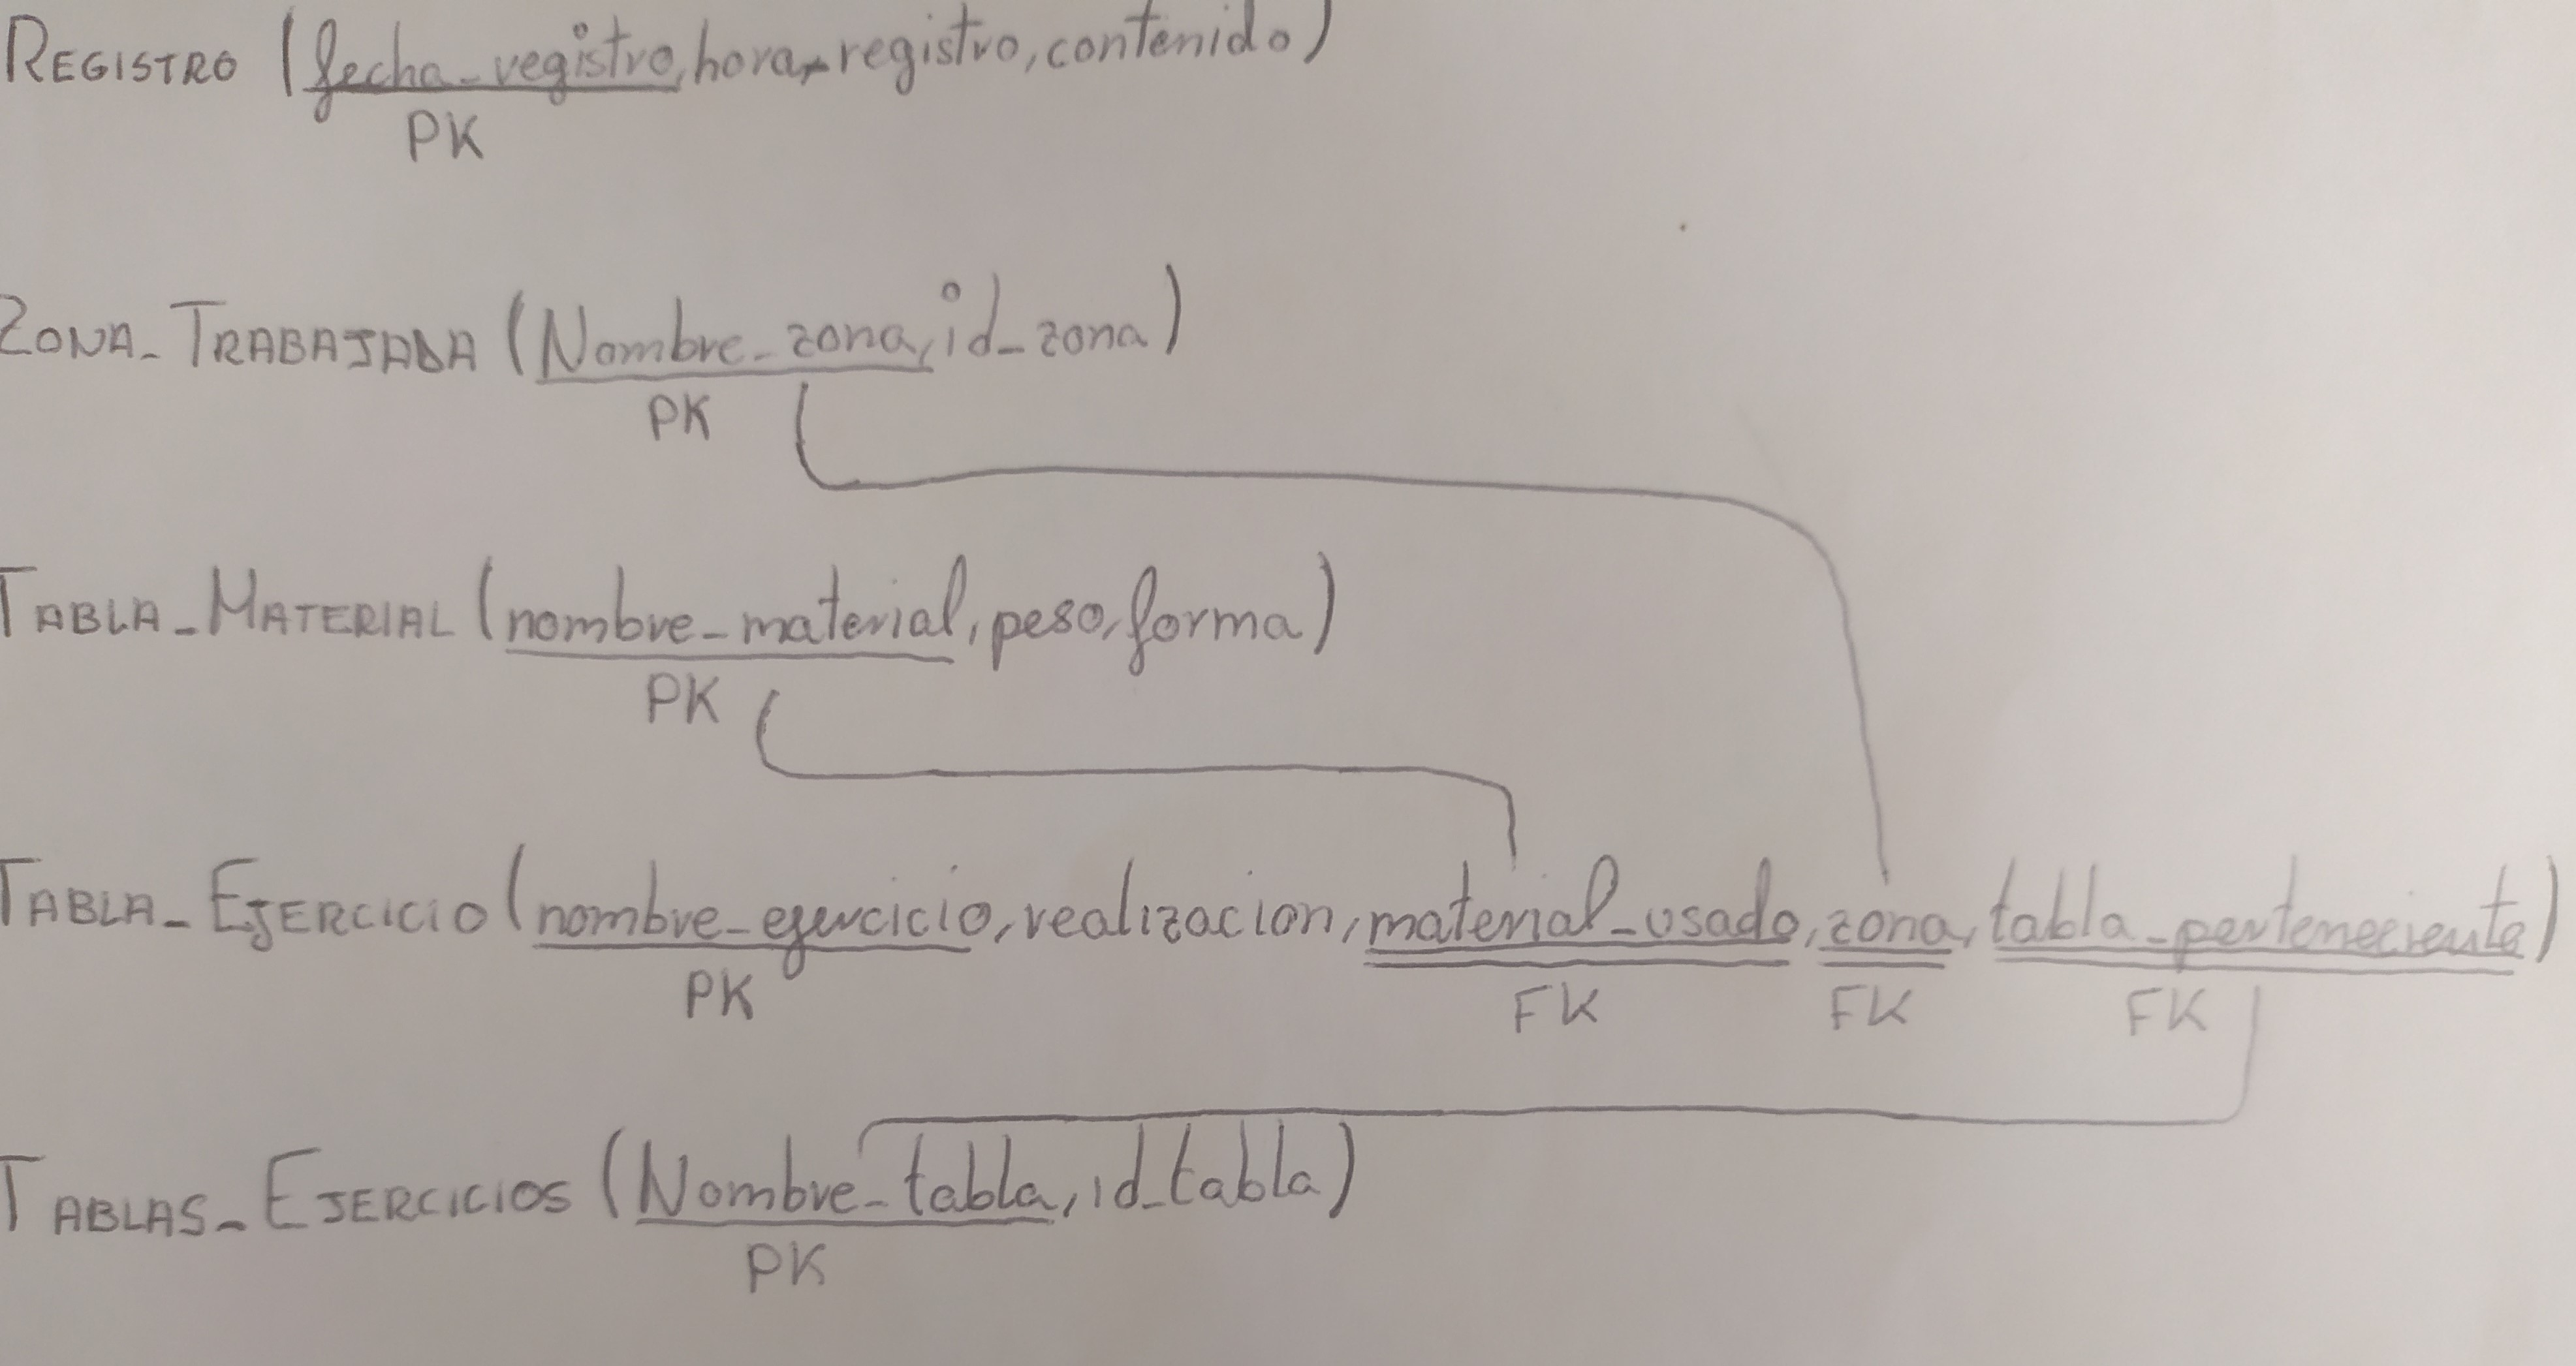 REGISTRO (fecha_registro, hora_registro, contenido)
PK
ZONA_TRABAJADA (Nombre_zona, id_zona)
PK
TABLA_MATERIAL (nombre_material, peso, forma)
PK
TABLA_EJERCICIO (nombre_ejercicio, realizacion, material_usado, zona, tabla_perteneciente)
PK FK FK FK
TABLAS_EJERCICIOS (Nombre_tabla, id_tabla)
PK